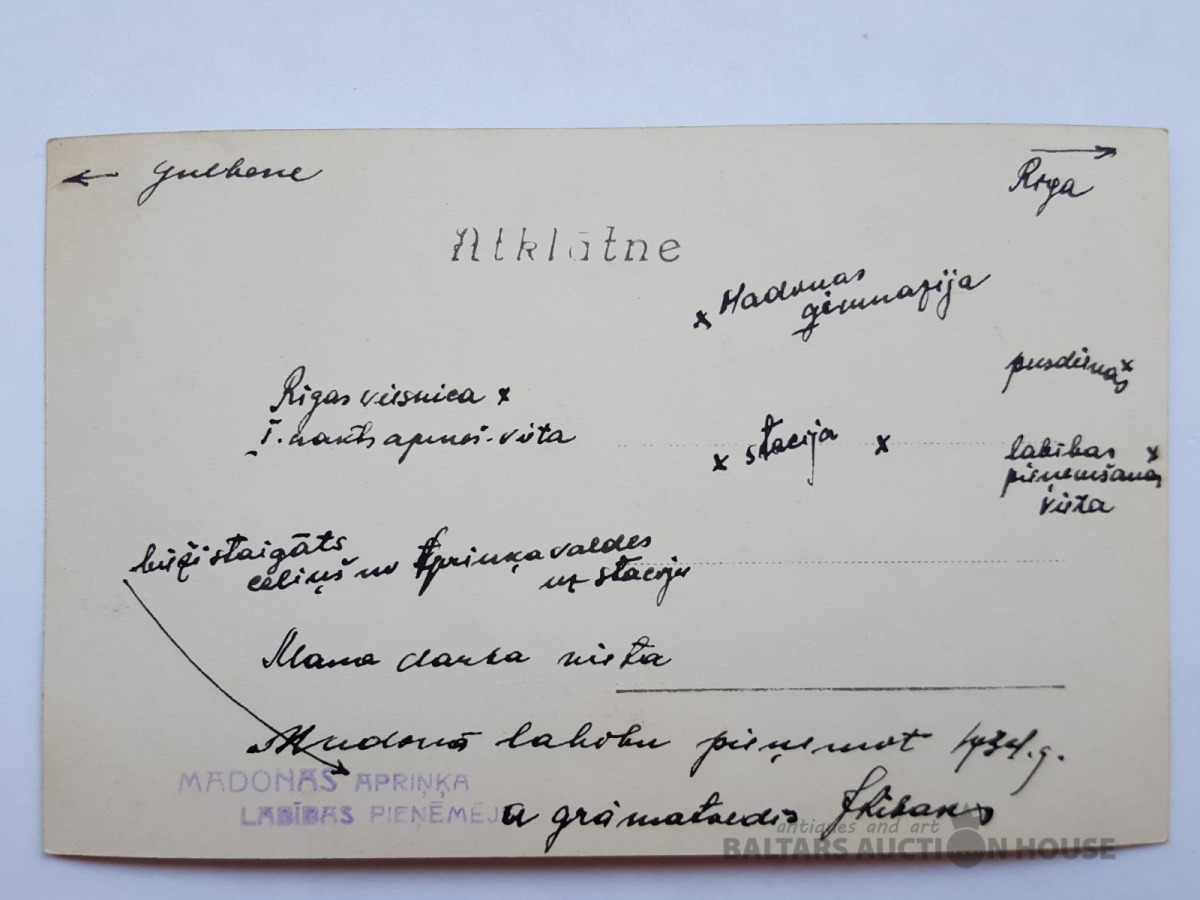 ← Gulbene
Rīga →
Atklātne
x Madonas
ģimnazija
pusdienas x
Rīgas viesnīca x
I. nakts apmeš. vieta
x stacija x
labības x
pieņemšanas
vieta
bieži staigāts
celiņš no Apriņķa valdes
uz staciju
Mana darba vieta
Madonā labību pieņemot 1934.g.
MADONAS APRIŅĶA
LABĪBAS PIEŅĒMĒJ
a grāmatvedis
antiques and art
BALTARS AUCTION HOUSE